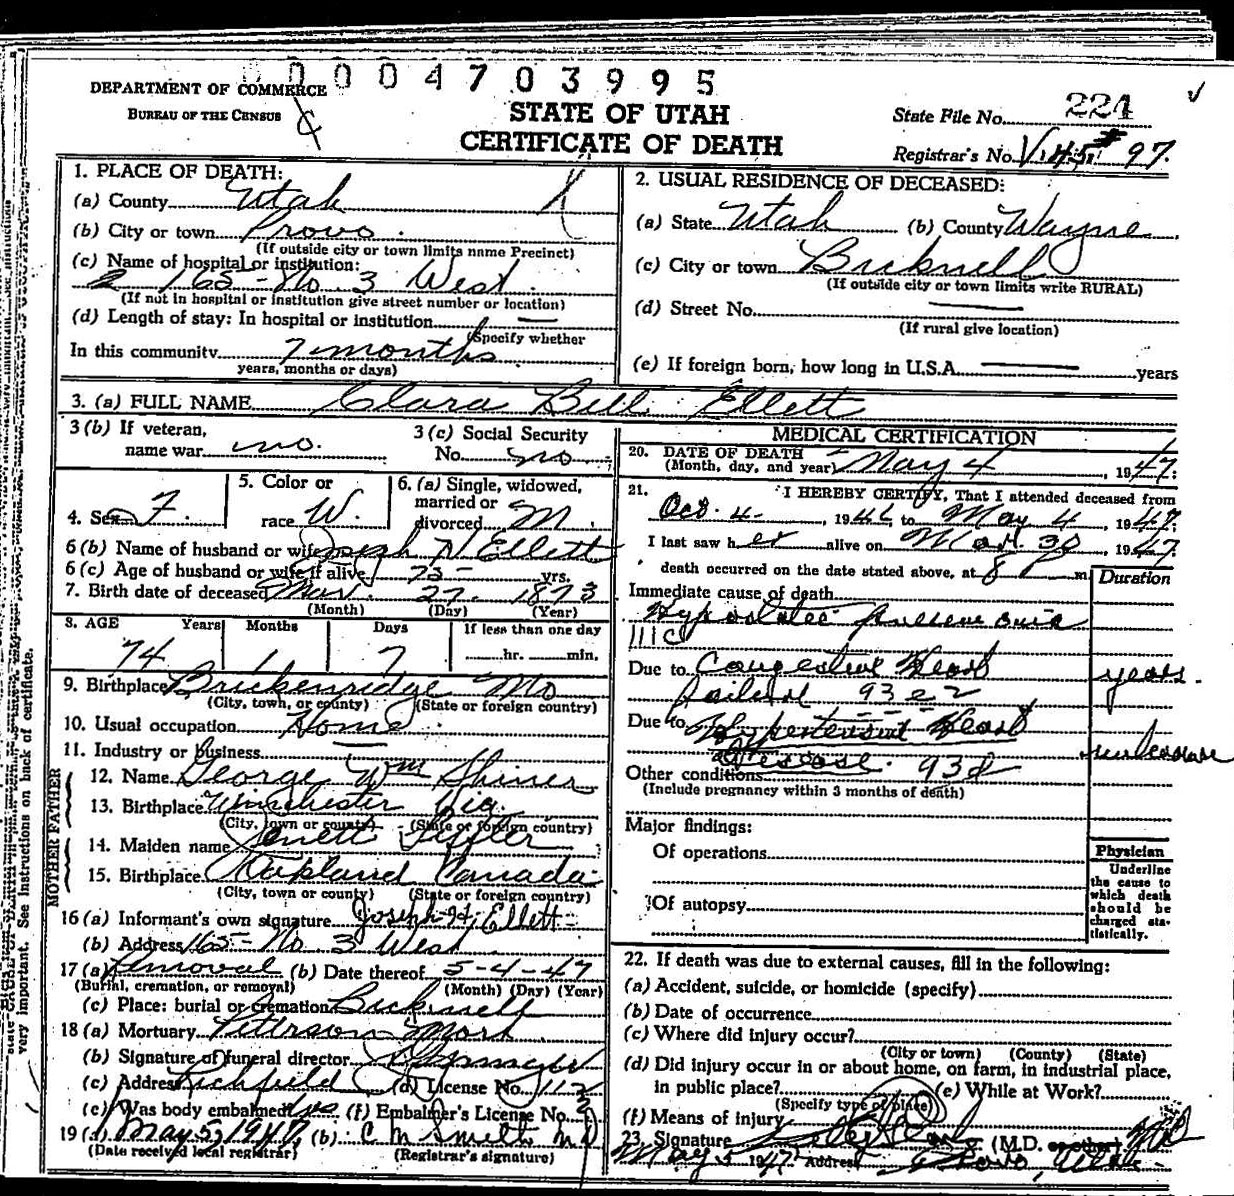 0004703995
DEPARTMENT OF COMMERCE
BUREAU OF THE CENSUS
STATE OF UTAH
CERTIFICATE OF DEATH
State File No. 224
Registrar's No. V-145 # 97.
1. PLACE OF DEATH:
(a) County Utah
(b) City or town Provo.
(If outside city or town limits name Precinct)
(c) Name of hospital or institution:
165 - No. 3 West.
(If not in hospital or institution give street number or location)
(d) Length of stay: In hospital or institution —
(Specify whether
In this community 7 months
years, months or days)
2. USUAL RESIDENCE OF DECEASED:
(a) State Utah (b) County Wayne
(c) City or town Bicknell
(If outside city or town limits write RURAL)
(d) Street No. —
(If rural give location)
(e) If foreign born, how long in U.S.A. — years
3. (a) FULL NAME Clara Bell Ellett
3 (b) If veteran,
name war no.
3 (c) Social Security
No. no
4. Sex F.
5. Color or
race W.
6. (a) Single, widowed,
married or
divorced M.
6 (b) Name of husband or wife Joseph H Ellett
6 (c) Age of husband or wife if alive 75 - yrs.
7. Birth date of deceased Mar. 27. 1873
(Month) (Day) (Year)
8. AGE Years Months Days If less than one day
74 1 7 hr. min.
9. Birthplace Brickenridge Mo
(City, town, or county) (State or foreign country)
10. Usual occupation Home.
11. Industry or business —
FATHER
12. Name George Wm Shiner
13. Birthplace Winchester Vig.
(City, town or county) (State or foreign country)
MOTHER
14. Maiden name Jenett
15. Birthplace Oakland Canada
(City, town or county) (State or foreign country)
16 (a) Informant's own signature Joseph H. Ellett
(b) Address 165 - No 3 West
17 (a) Removal (b) Date thereof 5-4-47
(Burial, cremation, or removal) (Month) (Day) (Year)
(c) Place: burial or cremation Bicknell
18 (a) Mortuary Peterson Mort
(b) Signature of funeral director
(c) Address Richfield (d) License No. 112
(e) Was body embalmed yes (f) Embalmer's License No.
19 (a) May 5, 1947, (b) C M Smith M D
(Date received local registrar) (Registrar's signature)
MEDICAL CERTIFICATION
20. DATE OF DEATH
(Month, day, and year) May 4, 1947.
21. I HEREBY CERTIFY, That I attended deceased from
Oct. 4-, 1946 to May 4, 1947.
I last saw her alive on Mar. 30, 1947.
death occurred on the date stated above, at 8 P m.
Duration
Immediate cause of death
Hypostatic pneumonia
111C
Due to Congestive Heart years.
failure 93e2
Due to Hypertensive Heart
Disease. 93d unknown
Other conditions
(Include pregnancy within 3 months of death)
Major findings:
Of operations
Of autopsy
Physician
Underline
the cause to
which death
should be
charged sta-
tistically.
22. If death was due to external causes, fill in the following:
(a) Accident, suicide, or homicide (specify)
(b) Date of occurrence
(c) Where did injury occur?
(City or town) (County) (State)
(d) Did injury occur in or about home, on farm, in industrial place,
in public place? (e) While at Work?
(Specify type of place)
(f) Means of injury
23. Signature (M.D. or other) MD
May 5 1947 Address Provo, Utah
very important. See instructions on back of certificate.